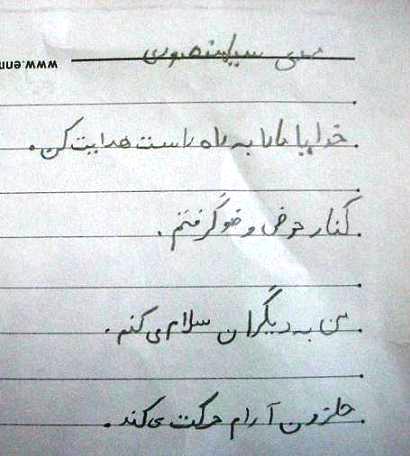 www.enn
خدایا ما را به راه راست هدایت کن.
کنار حوض وضو گرفتم.
من به دیگران سلام می کنم.
حلزون آرام حرکت می کند.